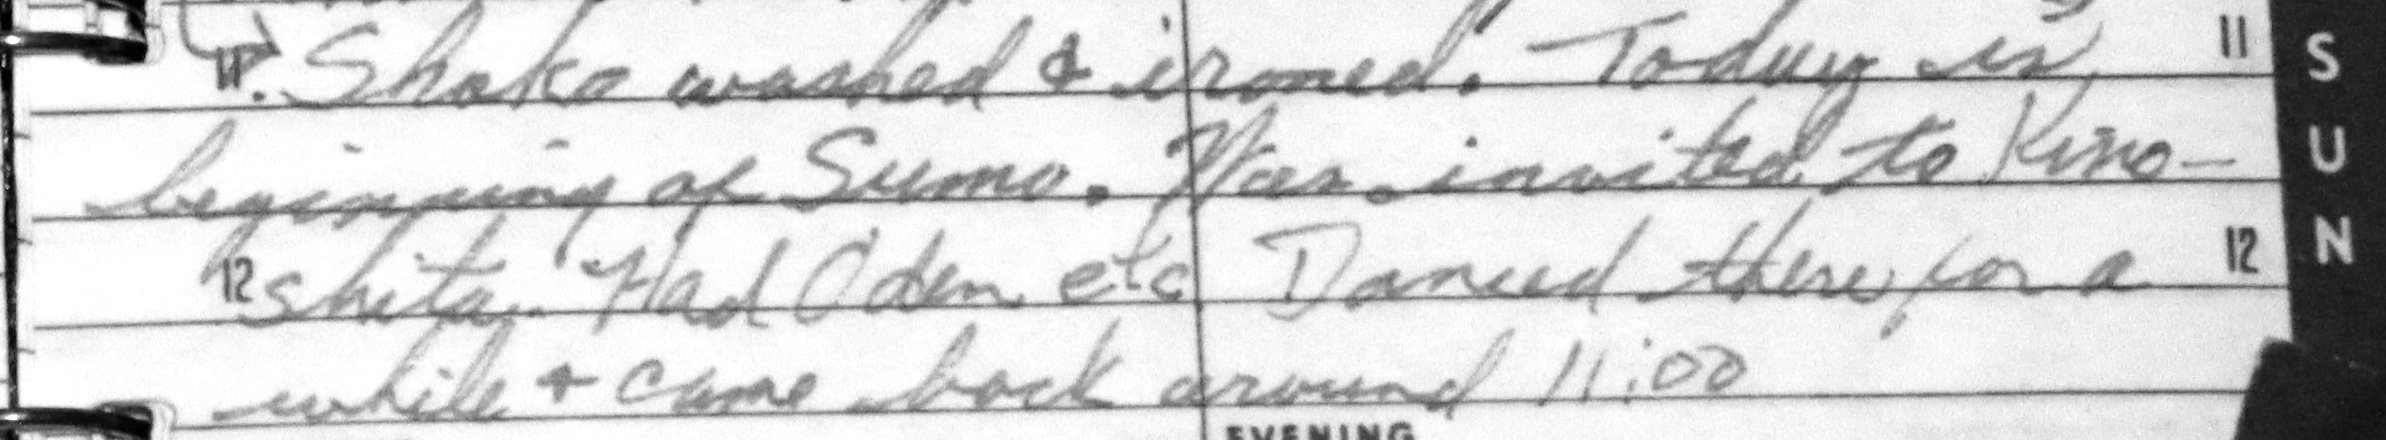 11. Shoko washed & ironed. Today is 11
beginning of Sumo. Was invited to Kino-
12 shita. Had Oden etc Danced there for a 12
while + came back around 11:00
EVENING
SUN